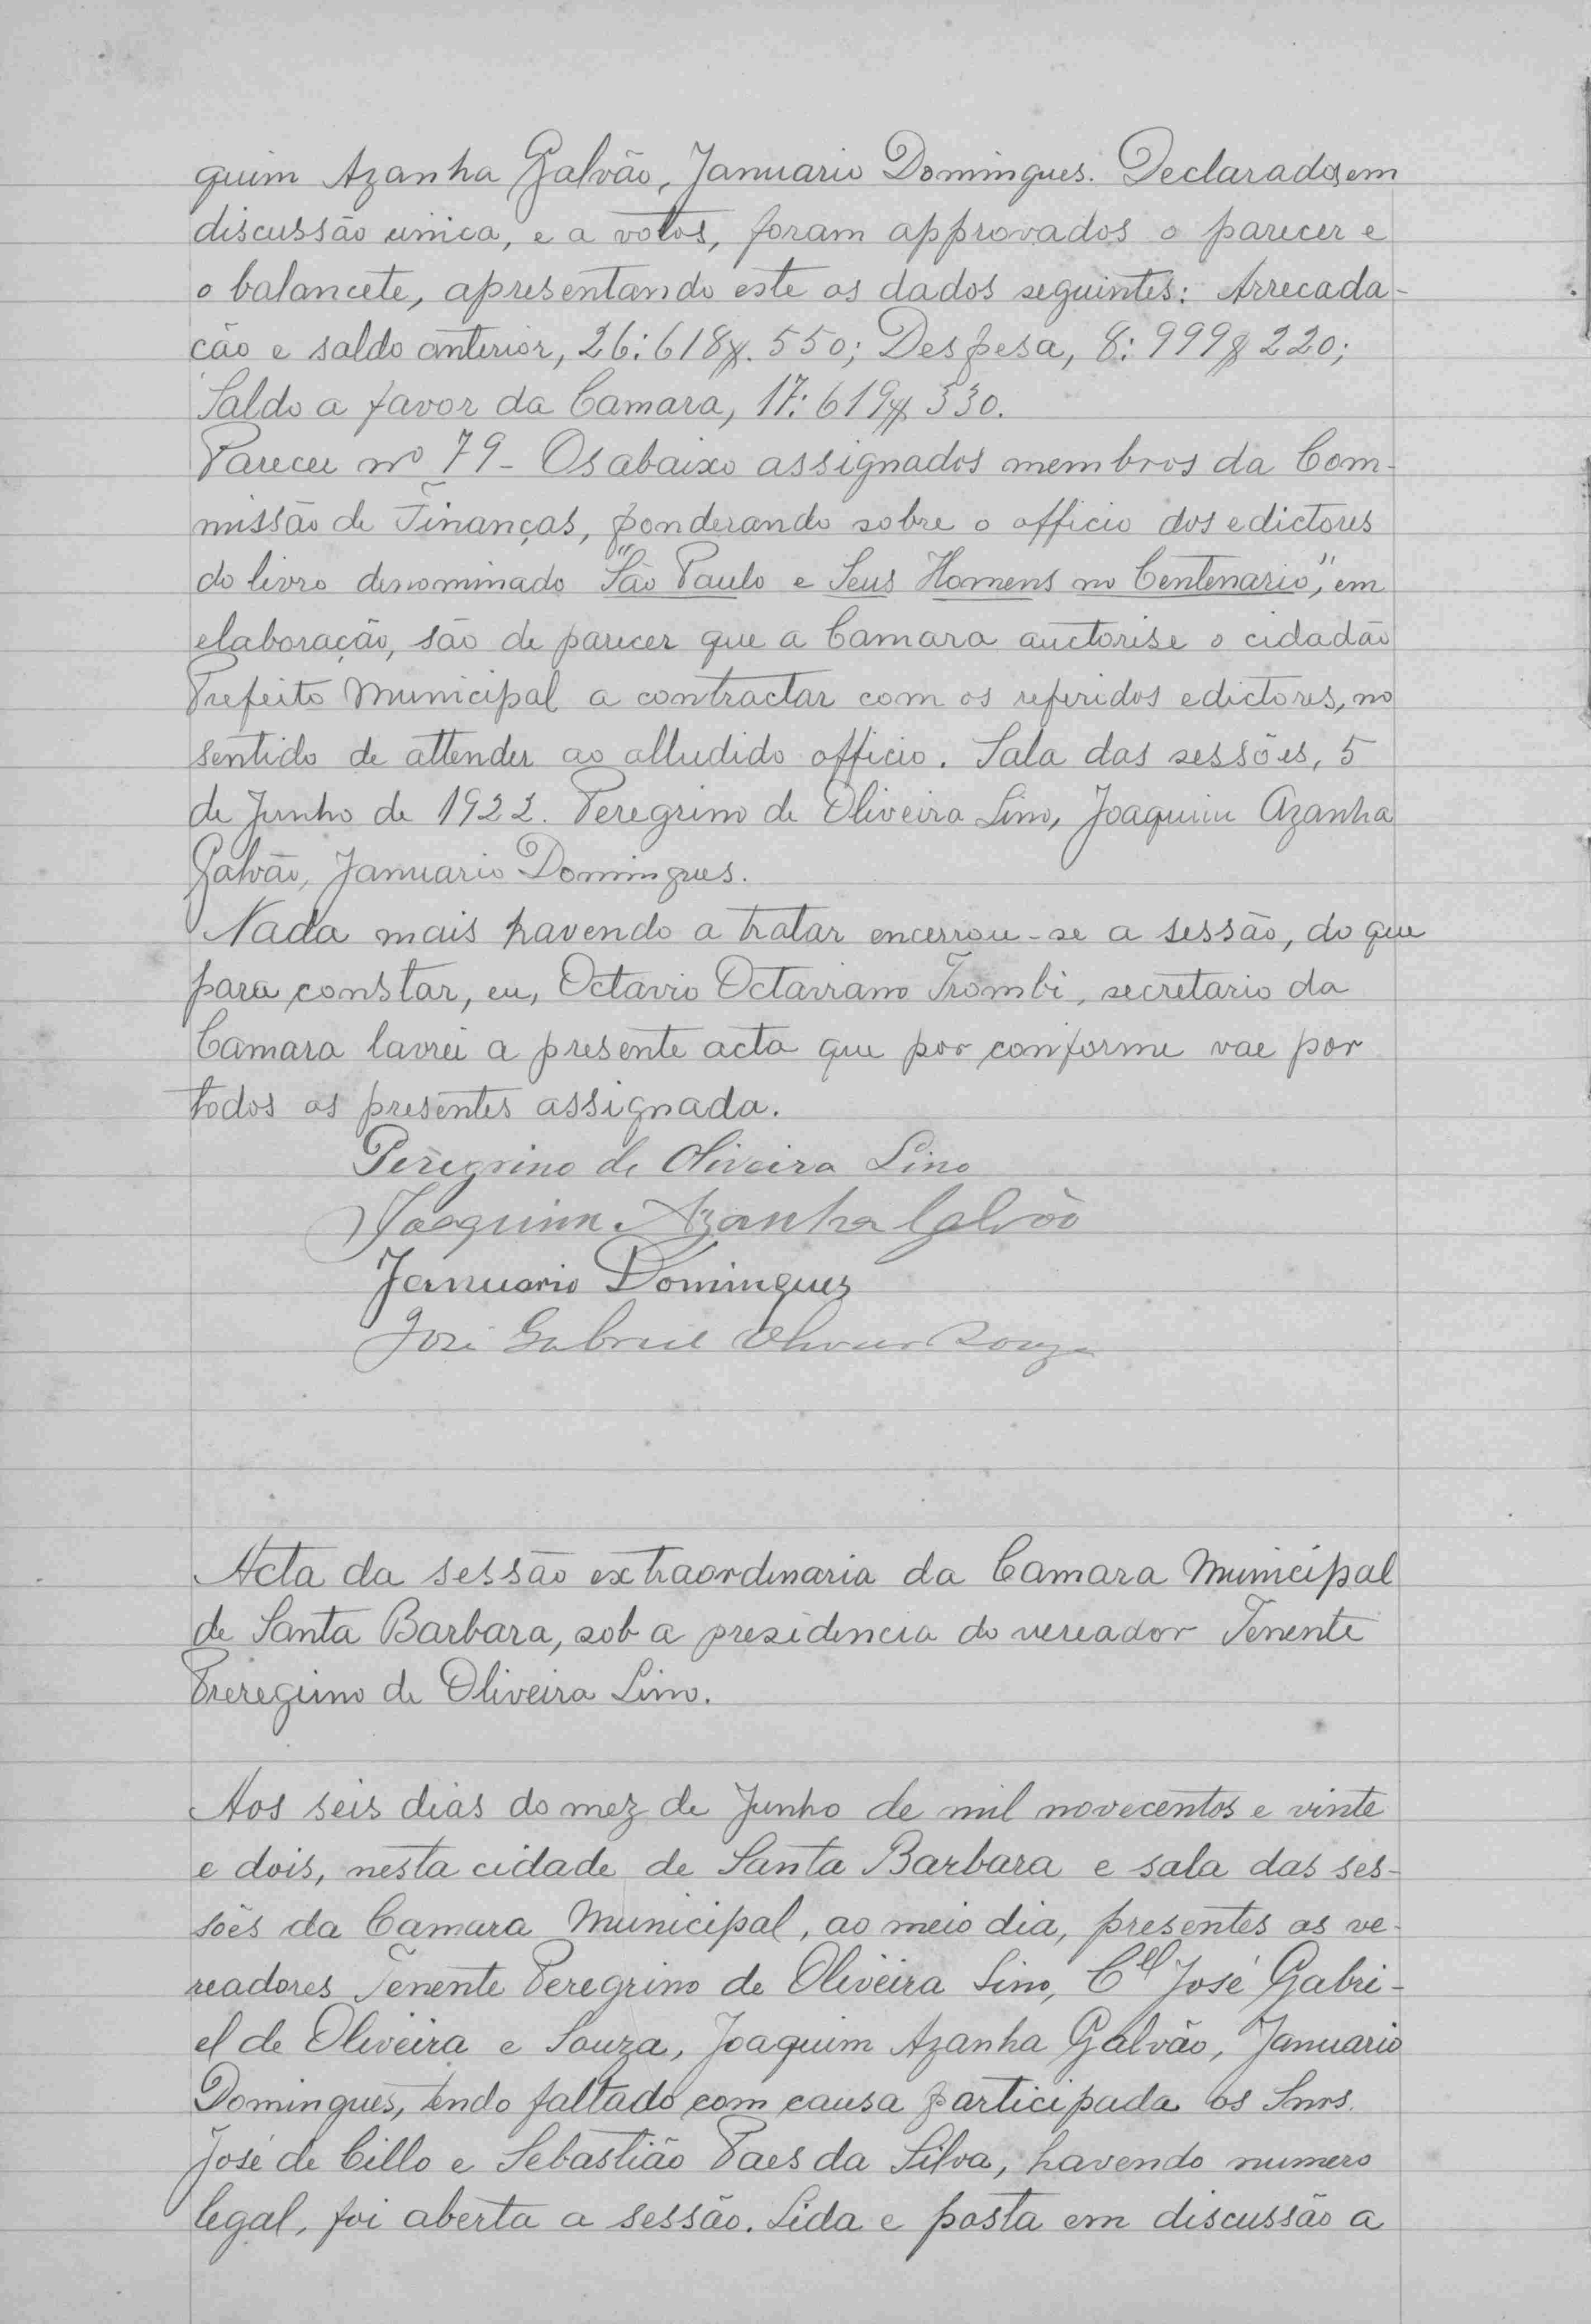 quim Azanha Galvão, Januario Domingues. Declarados em
discussão unica, e a votos, foram approvados o parecer e
o balancete, apresentando este os dados seguintes: Arrecada-
ção e saldo anterior, 26:618$.550; Despesa, 8:999$220;
Saldo a favor da Camara, 17:619$330.
Parecer nº 79 - Os abaixo assignados membros da Com-
missão de Finanças, ponderando sobre o officio dos edictores
do livro denominado "São Paulo e Seus Homens no Centenario", em
elaboração, são de parecer que a Camara auctorise o cidadão
Prefeito Municipal a contractar com os referidos edictores, no
sentido de attender ao alludido officio. Sala das sessões, 5
de Junho de 1922. Peregrino de Oliveira Lino, Joaquim Azanha
Galvão, Januario Domingues.
Nada mais havendo a tratar encerrou-se a sessão, do que
para constar, eu, Octavio Octaviano Trombi, secretario da
Camara lavrei a presente acta que por conforme vae por
todos os presentes assignada.
Peregrino de Oliveira Lino
Joaquim Azanha Galvão
Januario Domingues
José Gabriel Oliveira Souza
Acta da sessão extraordinaria da Camara Municipal
de Santa Barbara, sob a presidencia do vereador Tenente
Preregrino de Oliveira Lino.
Aos seis dias do mez de Junho de mil novecentos e vinte
e dois, nesta cidade de Santa Barbara e sala das ses-
sões da Camara Municipal, ao meio dia, presentes os ve-
readores Tenente Peregrino de Oliveira Lino, Cel José Gabri-
el de Oliveira e Souza, Joaquim Azanha Galvão, Januario
Domingues, tendo faltado com causa participada os Snrs.
José de Cillo e Sebastião Paes da Silva, havendo numero
legal, foi aberta a sessão. Lida e posta em discussão a